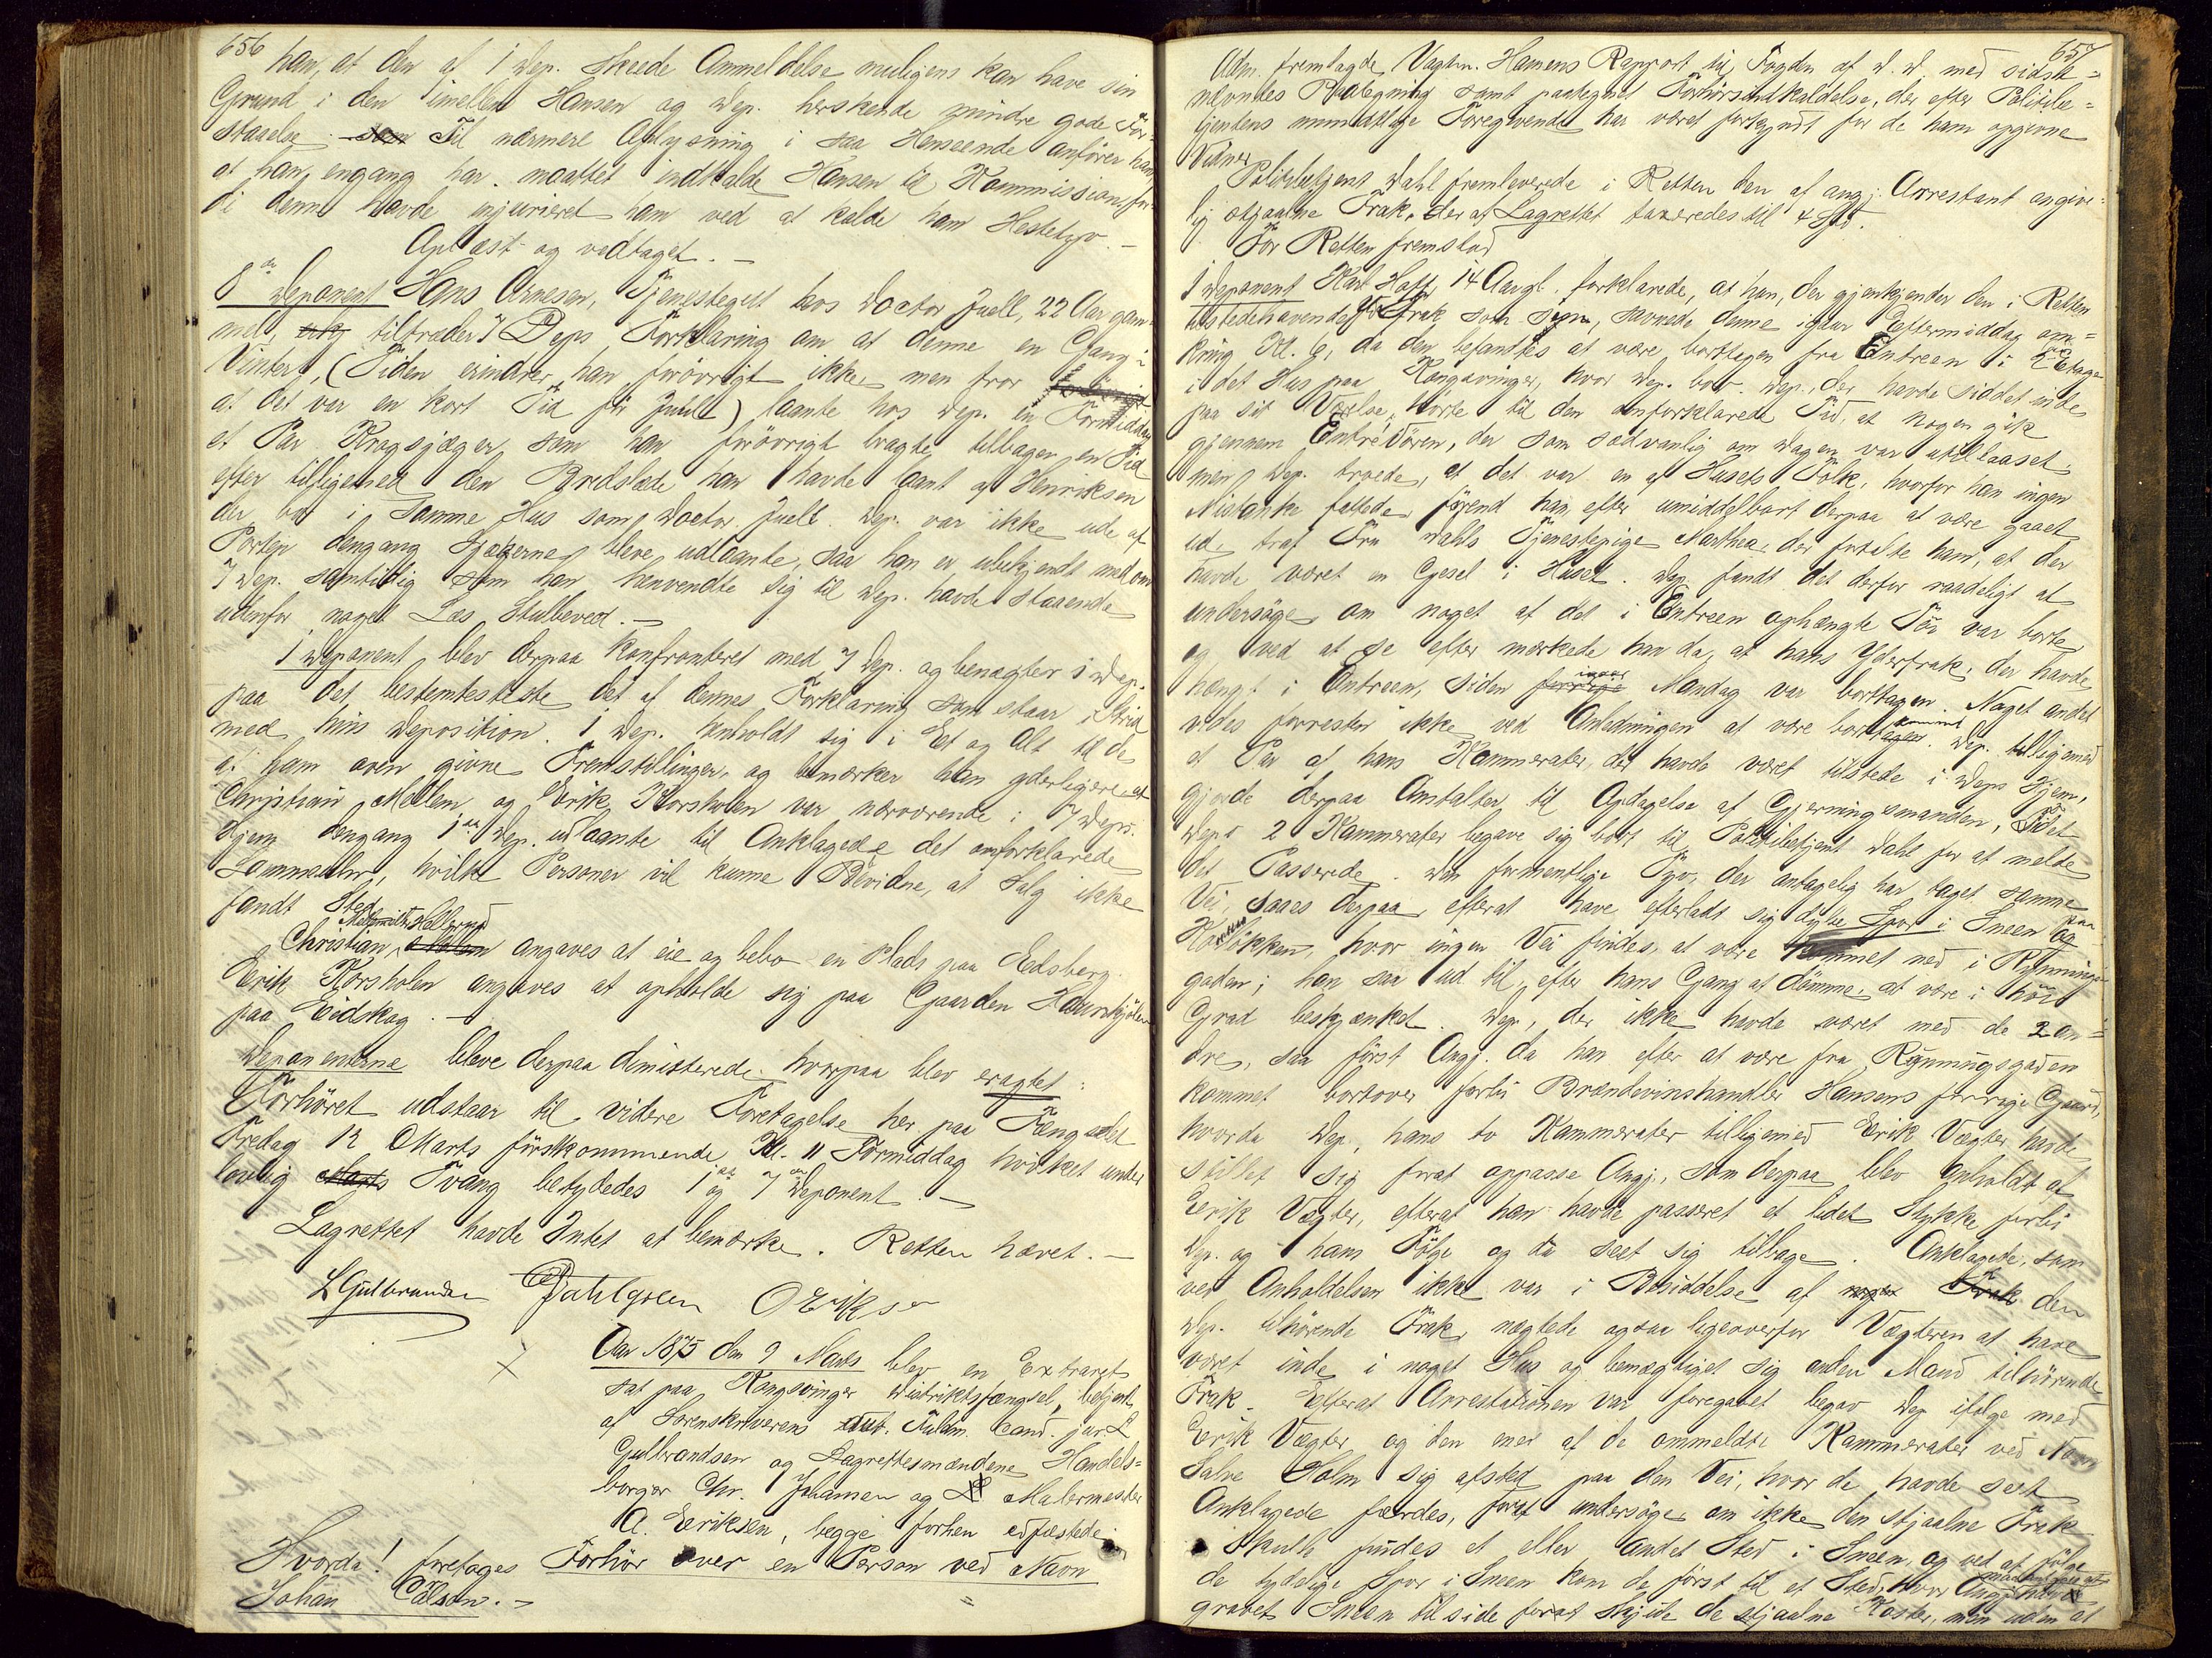 656
han, at den af 1 Dep. skeede Anmeldelse muligens kan have sin
Grund i den imellem Hansen og Dep. herskende mindre gode For-
staaelse. Til nærmere Oplysning i saa Henseende anfører han
at han engang har maattet indkalde Hansen til Kommissionen for-
di denne havde injurieret ham ved at kalde ham Hestetyv. –
Oplæst og vedtaget. –
8de Deponent Hans Arnesen, Tjenestegut hos Doctor Juell, 22 Aar gam-
mel, tiltræder 7 Deps Forklaring om at denne en Gang i
Vinter, (Tiden erindrer han forøvrigt ikke, men tror
at det var en kort Tid før Juul) laante hos Dep. en Formiddag
et Par Kragsjæger, som han forøvrigt bragte tilbage en Tid
efter tilligemed den Bredslæde han havde laant af Henriksen
der bor i samme Hus som Doctor Juell. Dep. var ikke ude af
Porten dengang Sjægerne bleve udlaante, saa han er ubekjendt med om
7 Dep. samtidig som han henvendte sig til Dep. havde staaende
udenfor noget Læs Stubbeved. –
1 Deponent blev derpaa konfronteret med 7 Dep. og benægter 1 Dep.
paa det bestemtesteste det af dennes Forklaring som staar i Strid
med hins Deposition. 1 Dep. henholdt sig i Et og Alt til de
af ham oven givne Fremstillinger, og bemærker han yderligere at
Christian Mellem og Erik Korsholen var nærværende i 7 Deps.
Hjem dengang 1ste Dep. udlaante til Anklagede det omforklarede
, hvilke Personer vil kunne Bevidne, at Salg ikke
fandt Sted.
Christian angaves at eie og bebo en Plads paa Edsberg.
Erik Korsholen angaves at opholde sig paa Gaarden
paa Eidskog. –
Deponenterne bleve derpaa dimitterede hvorpaa blev eragtet:
Forhøret udstaar til videre Foretagelse her paa Fængselet
Fredag 12 Marts førstkommende Kl. 11 Formiddag hvilket under
lovlig Marts Tvang betydedes 1ste og 7de Deponent. –
Lagrettet havde Intet at bemærke. Retten hævet. –
L Gulbrandsen Dahlgreen O Eriksen
Aar 1875 den 9 Marts blev en Extraret
sat paa Kongsvinger Distriktsfængsel, betjent
af Sorenskriverens Fuldm. Cand. jur. L
Gulbrandsen og Lagrettesmændene Handels-
borger Chr. Johansen og Malermester
A. Eriksen, begge forhen edfæstede.
Hvorda! foretages Forhør over en Person ved Navn
Johan Carlson. –
657
Adm. fremlagde Vagtm. Hamens Rapport til Fogden af D. D. med sidst-
nævntes Paategning samt paategnet Forhørsindkaldelse, der efter Politibe-
tjentens mundtlige Foregivende har været forkyndt for de ham opgivne
Vidner.
Politibetjent Dahl fremleverede i Retten den af angj. Arrestant angive-
lig stjaalne Frak, der af Lagrettet taxeredes til 4 Spd.
For Retten fremstod
1 Deponent Karl Hoff, 14 Aar gl. forklarede, at han, der gjenkjender den i Retten
tilstedehavende Yderfrak som sin, savnede denne igaar Eftermiddag om-
kring Kl. 6, da den befandtes at være borttagen fra Entreen i 2de Etage
i det Hus paa Kongsvinger, hvor Dep. bor. Dep., der havde siddet inde
paa sit Værelse, hørte til den omforklarede Tid, at nogen gik
gjennem Entrédøren, der som sædvanlig om Dagen var utillaaset,
men Dep. troede, at det var en af Husets Folk, hvorfor han ingen
Mistanke fattede, førend han efter umiddelbart derpaa at være gaaet
ud traf Fru Dahls Tjenestepige Marthea, der fortalte ham, at der
havde været en Gjesel i Huset. Dep. fandt det derfor raadeligt at
undersøge, om noget af det i Entreen ophængte Tøi var borte
og ved at se efter mærkede han da, at hans Yderfrak, der havde
hængt i Entreen, siden forrige Mandag var borttagen. Noget andet
vides forresten ikke ved Anledningen at være bortkommet. Dep. tilligemed
et Par af hans Kammerater, der havde været tilstede i Deps Hjem,
gjorde derpaa Anstalter til Opdagelse af Gjerningsmanden, idet
Deps 2 Kammerater begave sig bort til Politibetjent Dahl for at melde
det Passerede. Den formentlige Tyv, der antagelig har taget samme
Vei, saaes derpaa efterat have efterladt sig dybe Spor i Sneen paa
løkken, hvor ingen Vei findes, at være kommet ned i Rynnings-
gaden; han saa ud til, efter hans Gang at dømme, at være i høi
Grad beskjænket. Dep., der ikke havde været med de 2 an-
dre, saa først Angj. da han efter at være fra Rynningsgaden
kommet bortover forbi Brændevinshandler Hansens forrige Gaard,
hvorda Dep., hans to Kammerater tilligemed Erik Vægter havde
stillet sig forat oppasse Angj., som derpaa blev anholdt af
Erik Vægter, efterat han havde passeret et lidet Stykke forbi
Dep. og hans Følge og da seet sig tilbage. Anklagede, som
ved Anholdelsen ikke var i Besiddelse af den
Dep. tilhørende Frak, nægtede ogsaa ligeoverfor Vægteren at have
været inde i noget Hus og bemægtiget sig anden Mand tilhørende
Frak. Efterat Arrestationen var foregaaet begav Dep. ifølge med
Erik Vægter og den ene af de ommeldte Kammerater ved Navn
Salve Holm sig afsted paa den Vei, hvor de havde seet
Anklagede færdes, forat undersøge om ikke den stjaalne Frak
skulle findes et eller andet Sted i Sneen, og ved at følge
de tydelige Spor i Sneen kom de først til et Sted, hvor Angj. havde
gravet Sneen tilside forat skjule de stjaalne Koster, men uden at